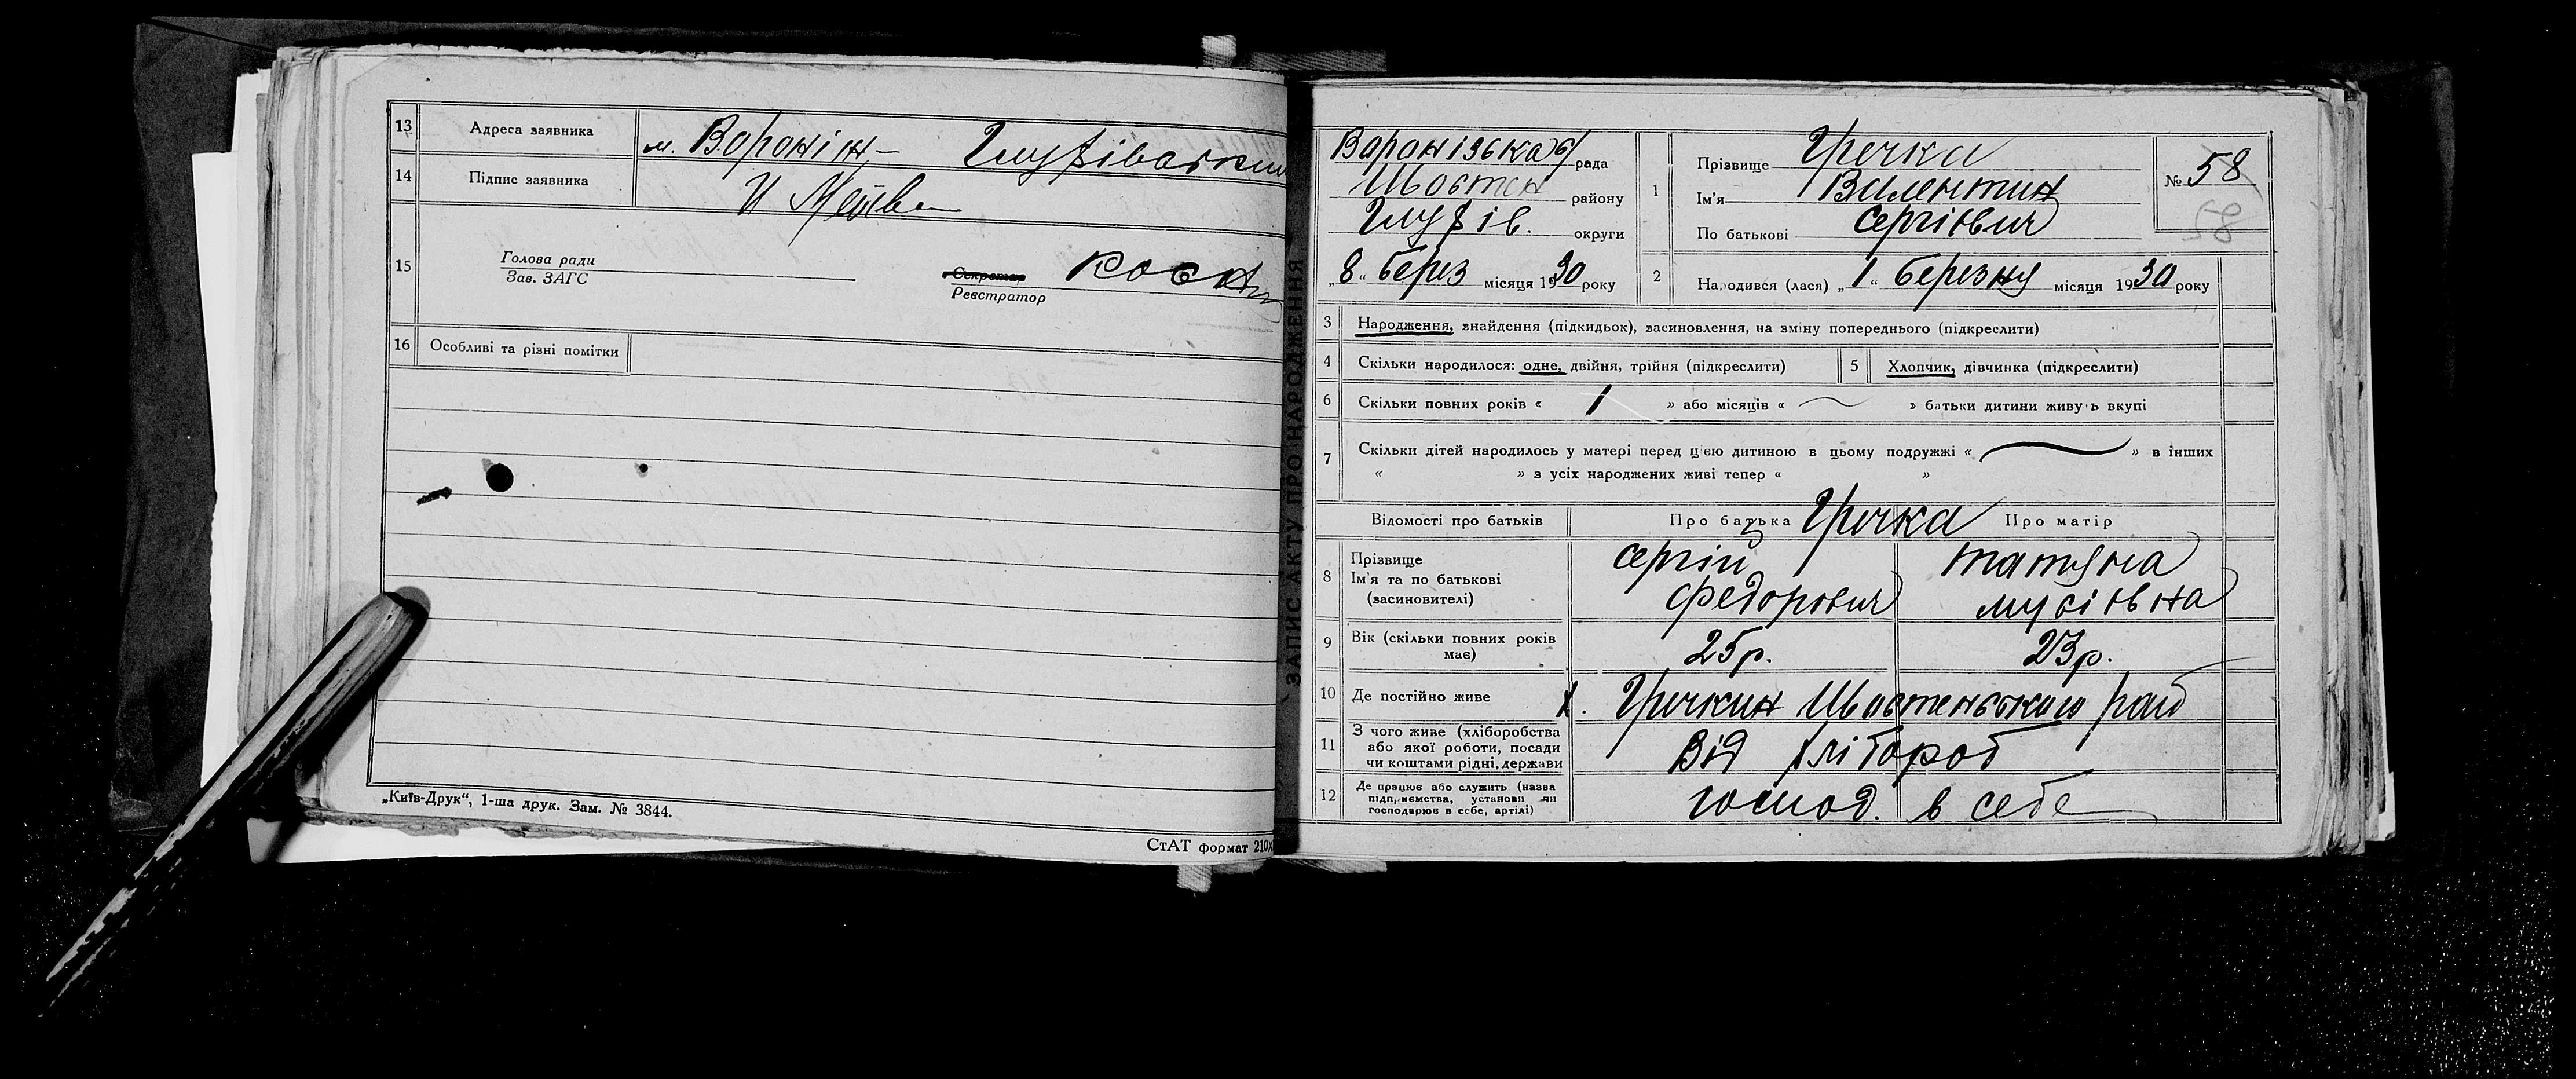 13 Адреса заявника м. Вороніж – Глухівськ
14 Підпис заявника
15 Голова ради
Зав. ЗАГС
Секретар
Реєстратор
16 Особливі та різні помітки
„Київ-Друк“, 1-ша друк. Зам. № 3844.
СтАТ формат 210×
ЗАПИС АКТУ ПРО НАРОДЖЕННЯ
Воронізька с/рада
Шостен району
Глухів. округи
„8“ берез місяця 1930 року
1 Прізвище Гречка
Ім'я Валентин
По батькові Сергіович
№ 58
58
2 Народився (лася) „1“ березня місяця 1930 року
3 Народження, знайдення (підкидьок), засиновлення, на зміну попереднього (підкреслити)
4 Скільки народилося: одне, двійня, трійня (підкреслити)
5 Хлопчик, дівчинка (підкреслити)
6 Скільки повних років « 1 » або місяців « — » батьки дитини живуть вкупі
7 Скільки дітей народилось у матері перед цією дитиною в цьому подружжі « — » в інших
« » з усіх народжених живі тепер « »
Відомості про батьків Про батька Гречка Про матір
8 Прізвище
Ім'я та по батькові
(засиновителі)
Сергій
Федорович
Татяна
Мусіовна
9 Вік (скільки повних років має) 25р. 23р.
10 Де постійно живе х. Гречкин Шостенського рай
11 З чого живе (хліборобства
або якої роботи, посади
чи коштами рідні, держави
Від хлібороб
12 Де працює або служить (назва
підприємства, установи чи
господарює в себе, артілі)
господ. в себе